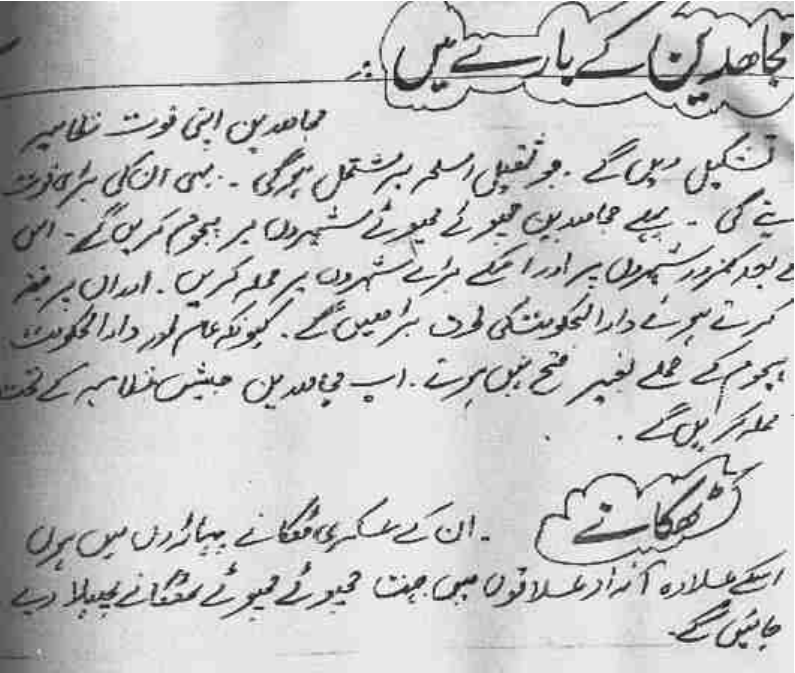 مجاھدین کے بارے میں :
مجاھدین اپنی قوت نظامیہ
تشکیل دیں گے ۔ جو ثقیل اسلحہ پر مشتمل ہوگی ۔ یہی ان کی بڑی قوت
بنے گی ۔ پہلے مجاھدین چھوٹے چھوٹے شہروں پر ہجوم کریں گے ۔ اس
کے بعد کمزور شہروں پر اور اسکے بڑے شہروں پر حملہ کریں ۔ اور ان پر قبضہ
کرتے ہوئے دارالحکومت کی طرف بڑھیں گے ۔ کیونکہ عام طور دارالحکومت
ہجوم کے حملے بغیر فتح نہیں ہوتے ۔ اب مجاھدین جیش نظامیہ کے تحت
حملہ کریں گے ۔
ٹھکانے ۔ ان کے عسکری ٹھکانے پہاڑوں میں ہوں
اسکے علاوہ آزاد علاقوں میں چھوٹے چھوٹے ٹھکانے پھیلا دیے
جائیں گے ۔